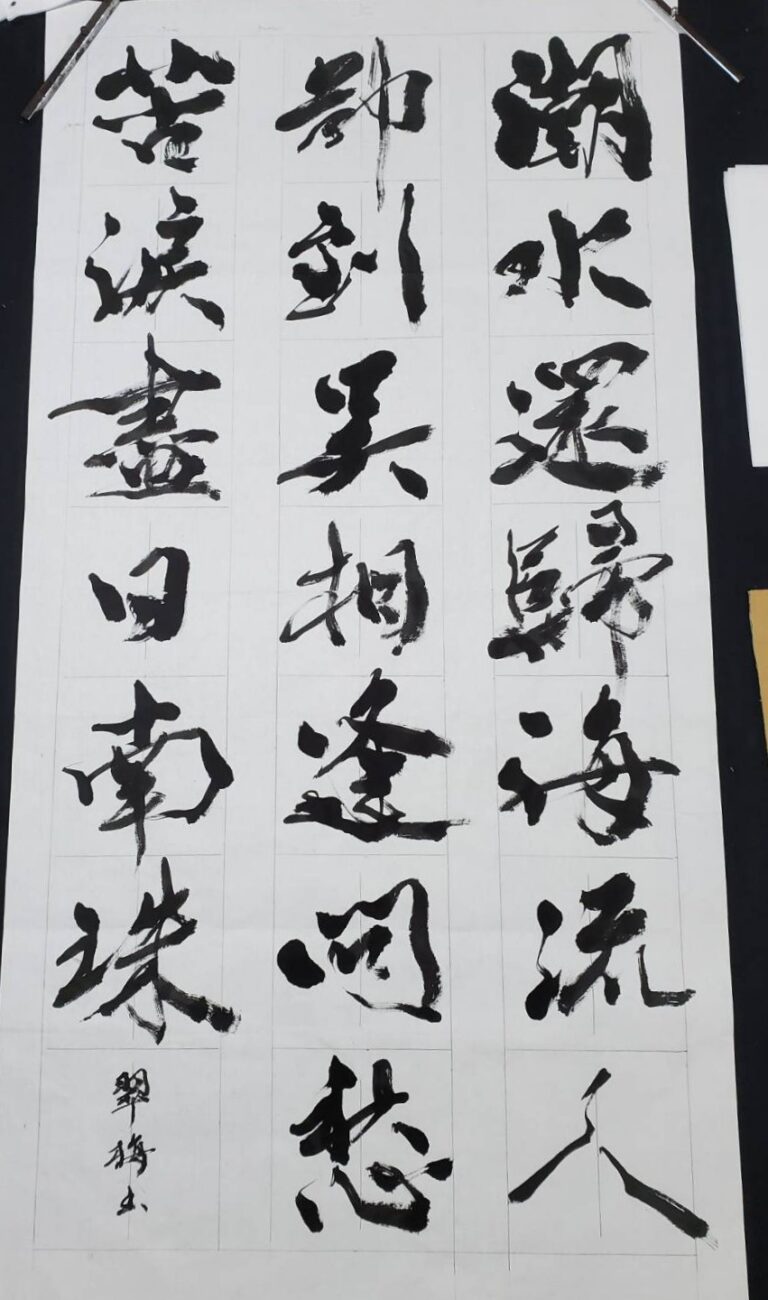 潮水還歸海流人
卻到吳相逢問愁
苦淚盡日南珠
翠梅书